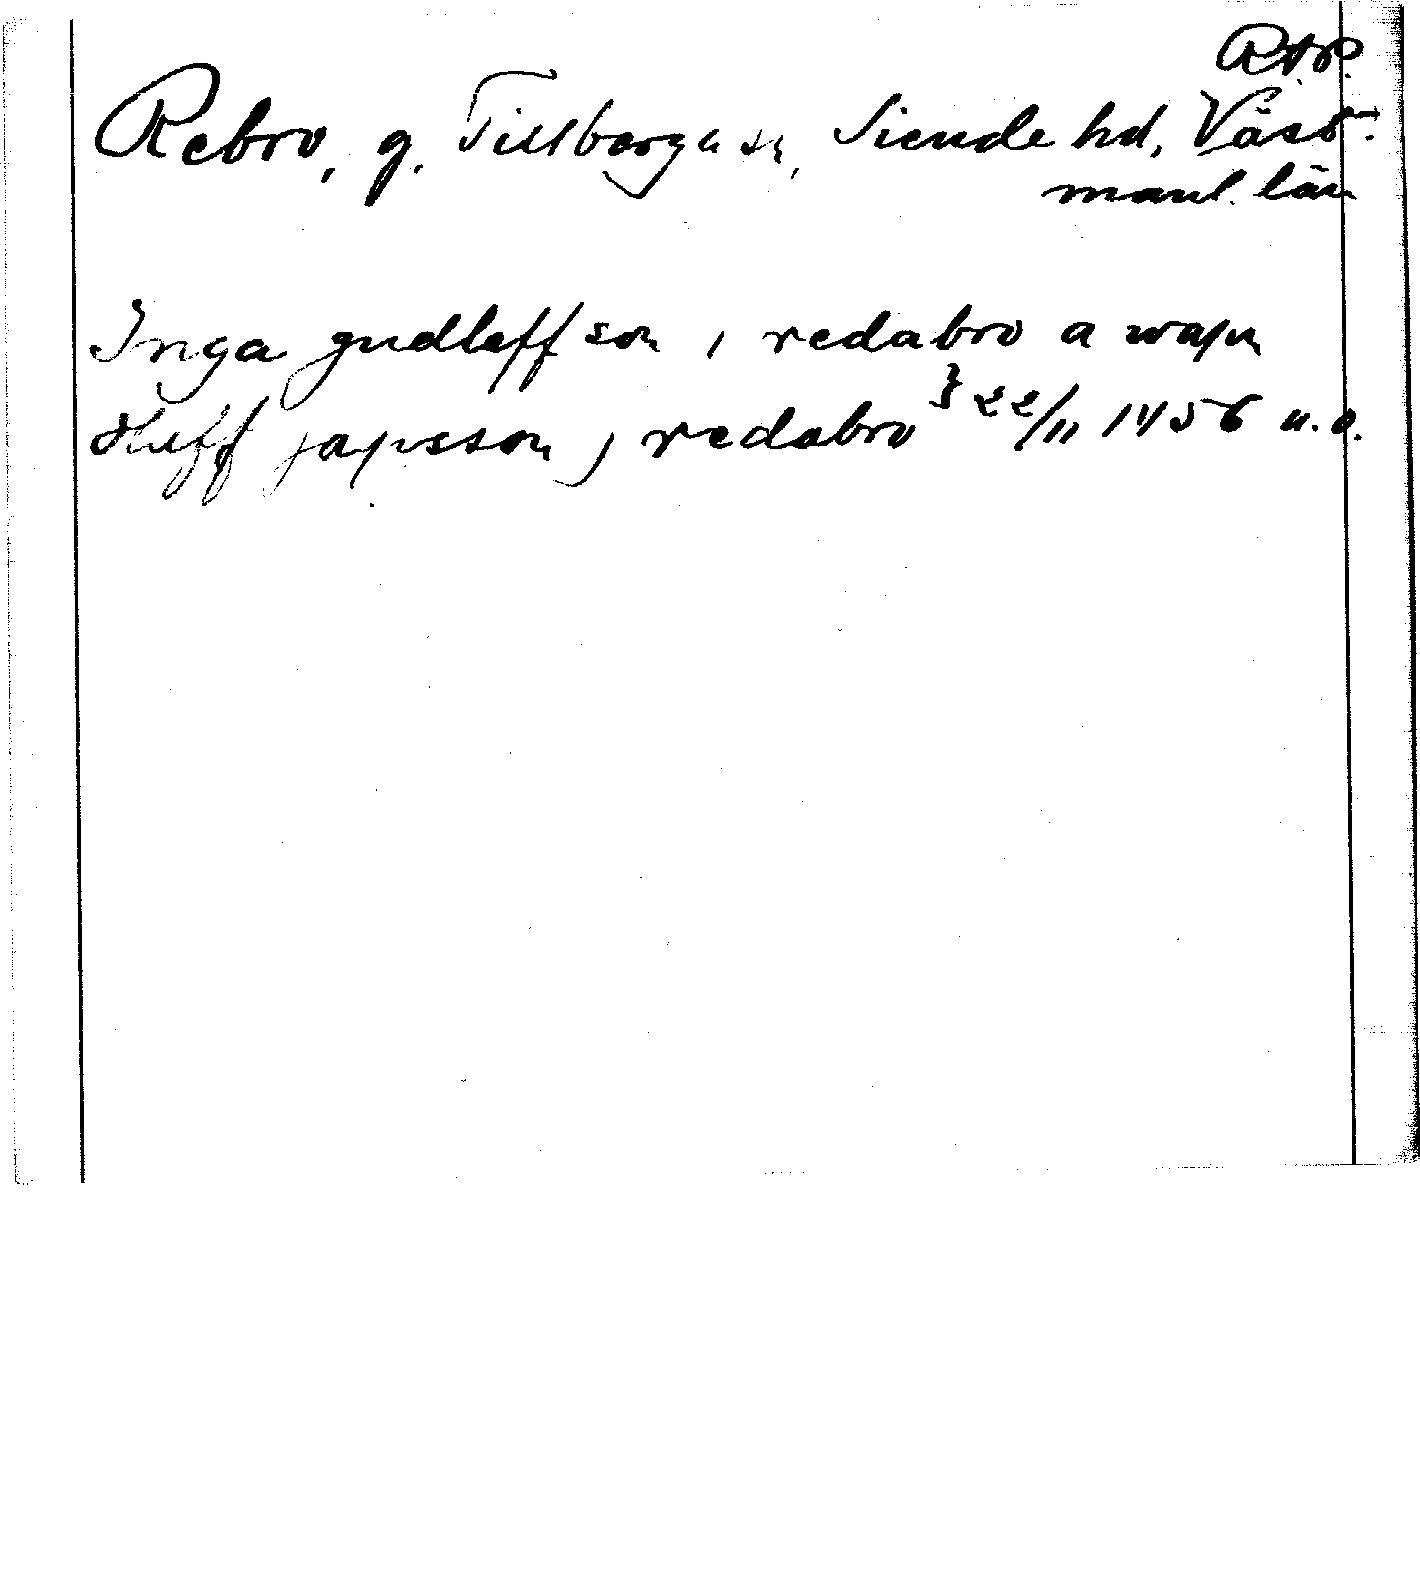 RAP.
Rebro, g. Tillberga sn, Siende hd, Väst-
manl. län
Inga gudleffson i redabro a wapn
Heff japsson j redabro } 22/11 1456 u.o.